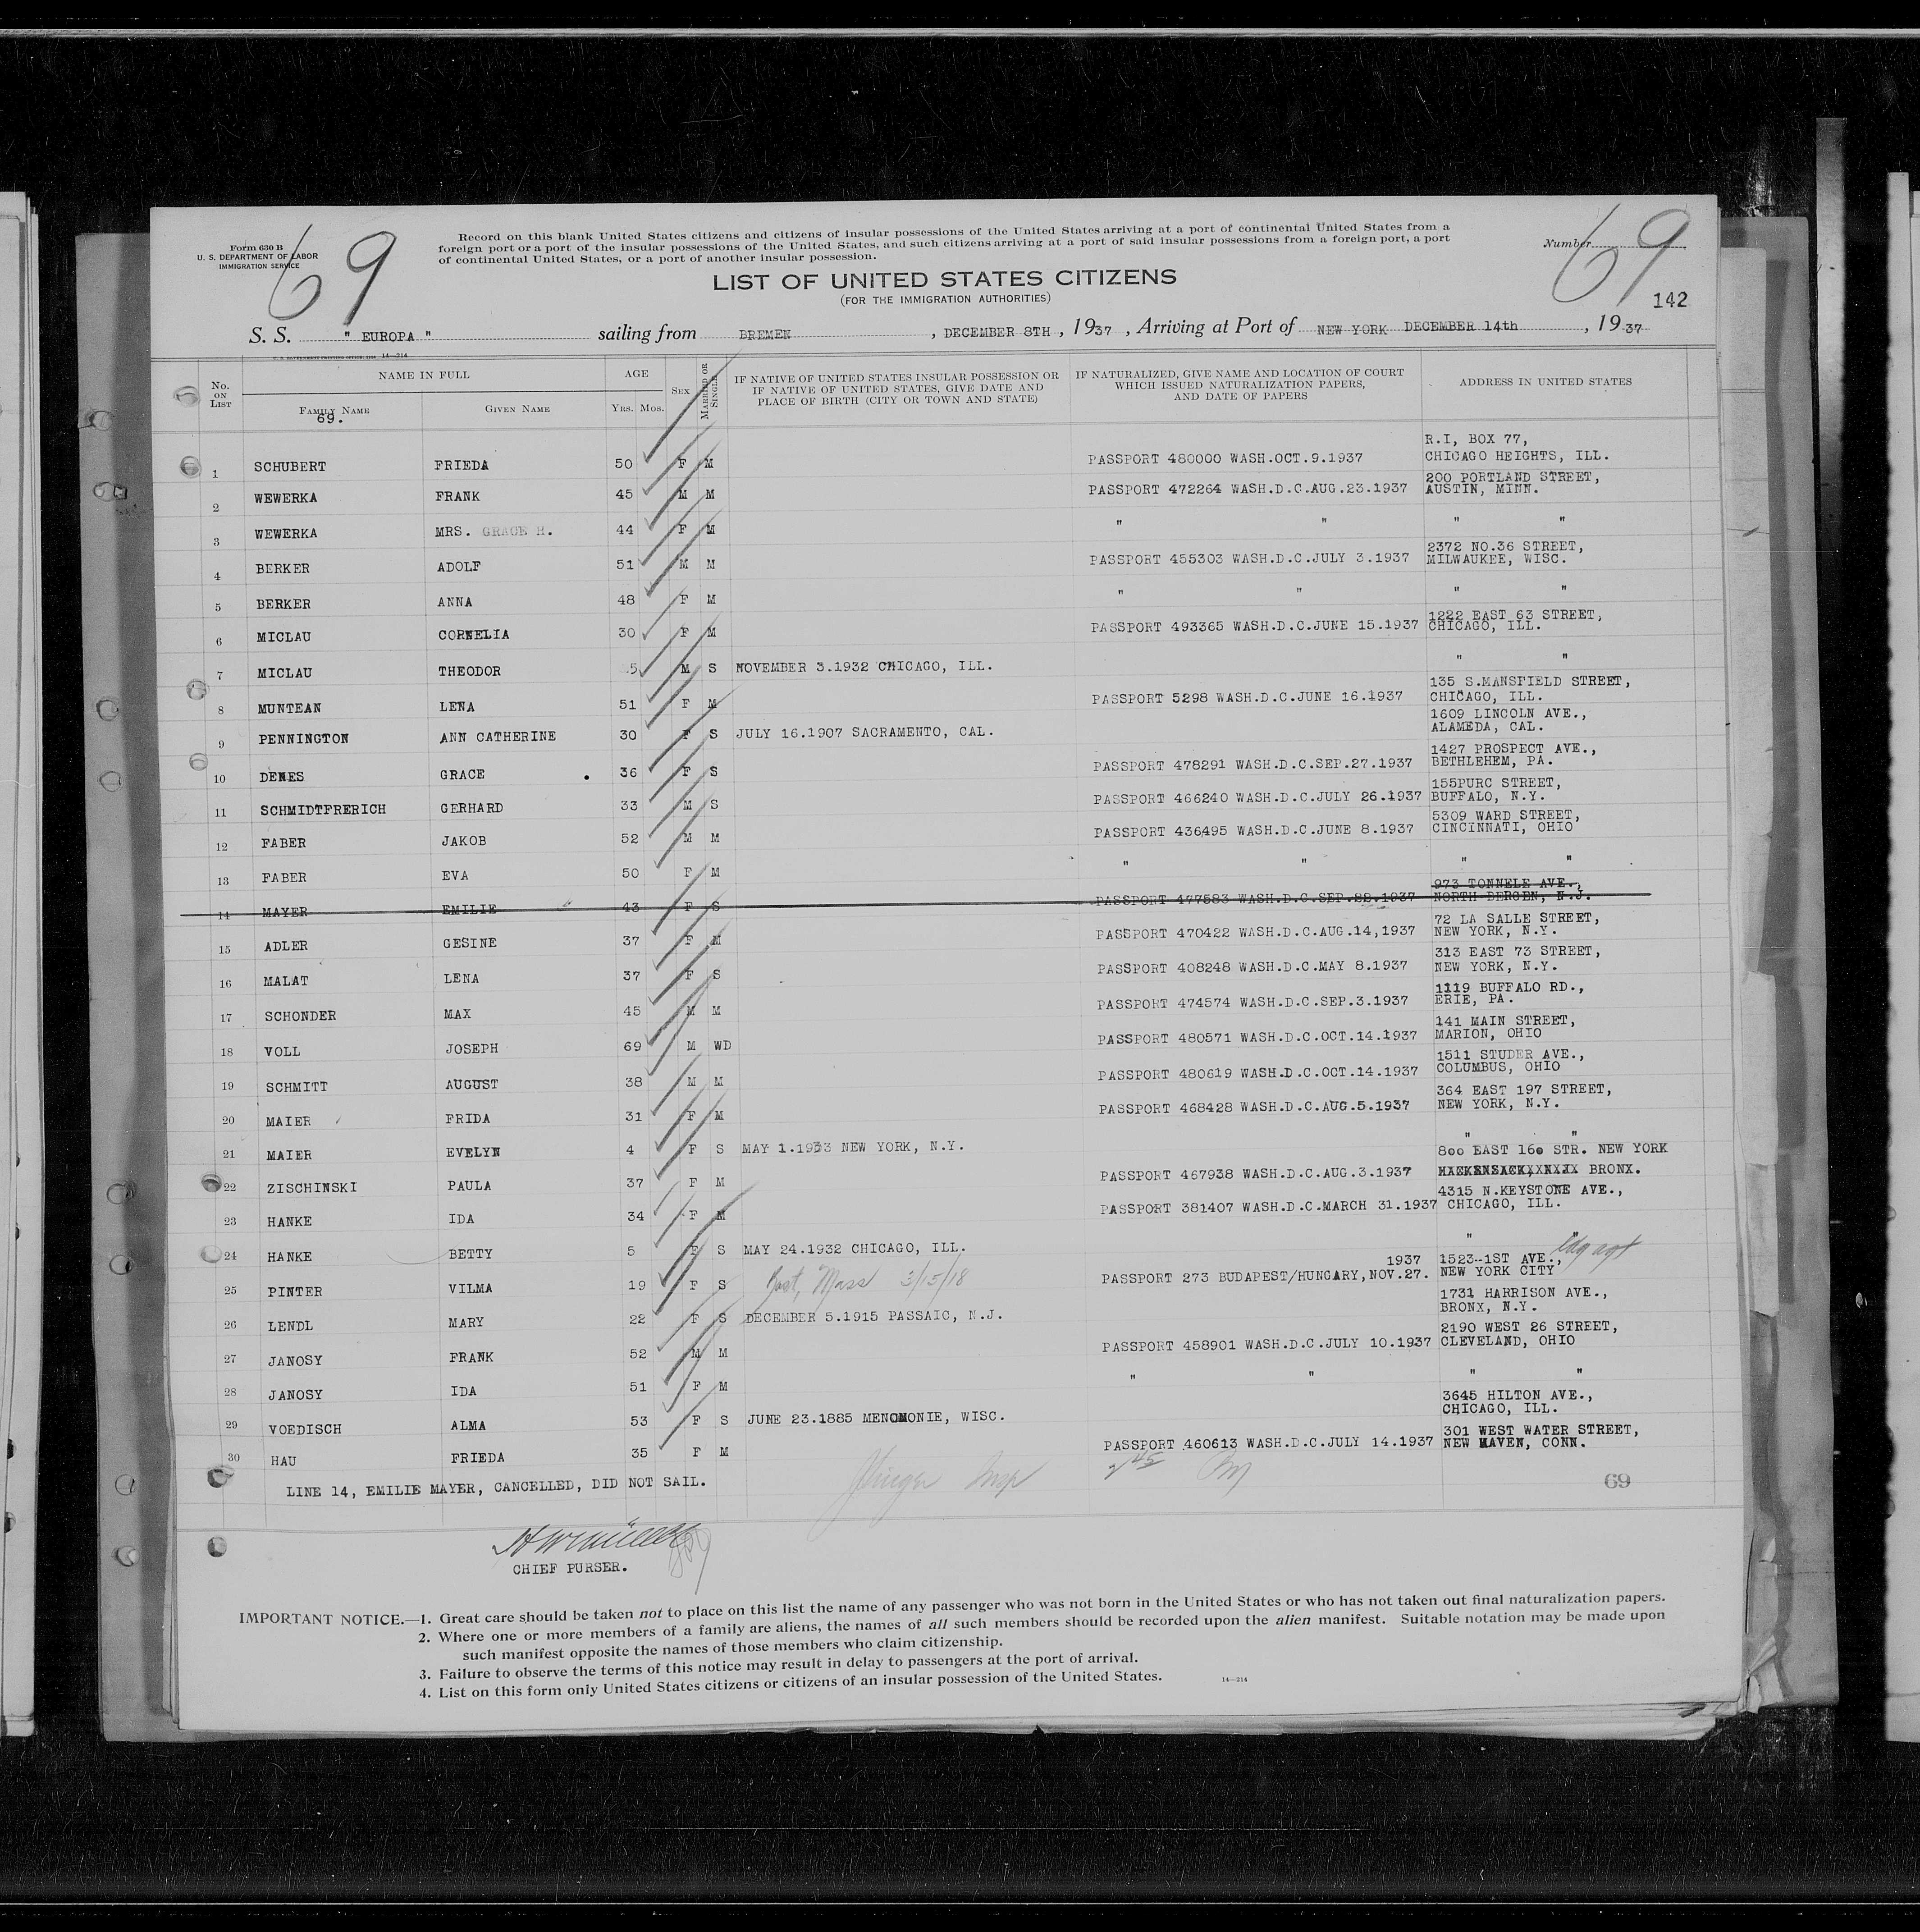 Form 630 B
U. S. DEPARTMENT OF LABOR
IMMIGRATION SERVICE
69
Record on this blank United States citizens and citizens of insular possessions of the United States arriving at a port of continental United States from a
foreign port or a port of the insular possessions of the United States, and such citizens arriving at a port of said insular possessions from a foreign port, a port
of continental United States, or a port of another insular possession.
Number 69
LIST OF UNITED STATES CITIZENS
(FOR THE IMMIGRATION AUTHORITIES)
142
S. S. " EUROPA " sailing from BREMEN, DECEMBER 8TH, 1937, Arriving at Port of NEW YORK DECEMBER 14th, 1937
14—214
No. ON LIST
NAME IN FULL
FAMILY NAME
GIVEN NAME
AGE
YRS. MOS.
SEX
MARRIED OR SINGLE
IF NATIVE OF UNITED STATES INSULAR POSSESSION OR
IF NATIVE OF UNITED STATES, GIVE DATE AND
PLACE OF BIRTH (CITY OR TOWN AND STATE)
IF NATURALIZED, GIVE NAME AND LOCATION OF COURT
WHICH ISSUED NATURALIZATION PAPERS,
AND DATE OF PAPERS
ADDRESS IN UNITED STATES
69.
1 SCHUBERT FRIEDA 50 F M PASSPORT 480000 WASH.OCT.9.1937 R.I, BOX 77,
CHICAGO HEIGHTS, ILL.
2 WEWERKA FRANK 45 M M PASSPORT 472264 WASH.D.C.AUG.23.1937 200 PORTLAND STREET,
AUSTIN, MINN.
3 WEWERKA MRS. GRACE H. 44 F M " " " "
4 BERKER ADOLF 51 M M PASSPORT 455303 WASH.D.C.JULY 3.1937 2372 NO.36 STREET,
MILWAUKEE, WISC.
5 BERKER ANNA 48 F M " " " "
6 MICLAU CORNELIA 30 F M PASSPORT 493365 WASH.D.C.JUNE 15.1937 1222 EAST 63 STREET,
CHICAGO, ILL.
7 MICLAU THEODOR 5 M S NOVEMBER 3.1932 CHICAGO, ILL. " "
8 MUNTEAN LENA 51 F M PASSPORT 5298 WASH.D.C.JUNE 16.1937 135 S.MANSFIELD STREET,
CHICAGO, ILL.
9 PENNINGTON ANN CATHERINE 30 F S JULY 16.1907 SACRAMENTO, CAL. 1609 LINCOLN AVE.,
ALAMEDA, CAL.
10 DENES GRACE 36 F S PASSPORT 478291 WASH.D.C.SEP.27.1937 1427 PROSPECT AVE.,
BETHLEHEM, PA.
11 SCHMIDTFRERICH GERHARD 33 M S PASSPORT 466240 WASH.D.C.JULY 26.1937 155PURC STREET,
BUFFALO, N.Y.
12 FABER JAKOB 52 M M PASSPORT 436495 WASH.D.C.JUNE 8.1937 5309 WARD STREET,
CINCINNATI, OHIO
13 FABER EVA 50 F M " " " "
14 MAYER EMILIE 43 F S PASSPORT 477583 WASH.D.C.SEP.22.1937 973 TONNELE AVE.,
NORTH BERGEN, N.J.
15 ADLER GESINE 37 F M PASSPORT 470422 WASH.D.C.AUG.14,1937 72 LA SALLE STREET,
NEW YORK, N.Y.
16 MALAT LENA 37 F S PASSPORT 408248 WASH.D.C.MAY 8.1937 313 EAST 73 STREET,
NEW YORK, N.Y.
17 SCHONDER MAX 45 M M PASSPORT 474574 WASH.D.C.SEP.3.1937 1119 BUFFALO RD.,
ERIE, PA.
18 VOLL JOSEPH 69 M WD PASSPORT 480571 WASH.D.C.OCT.14.1937 141 MAIN STREET,
MARION, OHIO
19 SCHMITT AUGUST 38 M M PASSPORT 480619 WASH.D.C.OCT.14.1937 1511 STUDER AVE.,
COLUMBUS, OHIO
20 MAIER FRIDA 31 F M PASSPORT 468428 WASH.D.C.AUG.5.1937 364 EAST 197 STREET,
NEW YORK, N.Y.
21 MAIER EVELYN 4 F S MAY 1.1933 NEW YORK, N.Y. " "
22 ZISCHINSKI PAULA 37 F M PASSPORT 467938 WASH.D.C.AUG.3.1937 800 EAST 160 STR. NEW YORK
HACKENSACK, N.J. BRONX.
23 HANKE IDA 34 F M PASSPORT 381407 WASH.D.C.MARCH 31.1937 4315 N.KEYSTONE AVE.,
CHICAGO, ILL.
24 HANKE BETTY 5 F S MAY 24.1932 CHICAGO, ILL. "
25 PINTER VILMA 19 F S Mass 3/15/18 PASSPORT 273 BUDAPEST/HUNGARY,NOV.27. 1937 1523-1ST AVE.,
NEW YORK CITY
26 LENDL MARY 22 F S DECEMBER 5.1915 PASSAIC, N.J. 1731 HARRISON AVE.,
BRONX, N.Y.
27 JANOSY FRANK 52 M M PASSPORT 458901 WASH.D.C.JULY 10.1937 2190 WEST 26 STREET,
CLEVELAND, OHIO
28 JANOSY IDA 51 F M " " " "
29 VOEDISCH ALMA 53 F S JUNE 23.1885 MENOMONIE, WISC. 3645 HILTON AVE.,
CHICAGO, ILL.
30 HAU FRIEDA 35 F M PASSPORT 460613 WASH.D.C.JULY 14.1937 301 WEST WATER STREET,
NEW HAVEN, CONN.
LINE 14, EMILIE MAYER, CANCELLED, DID NOT SAIL.
Insp
69
CHIEF PURSER.
IMPORTANT NOTICE.—1. Great care should be taken not to place on this list the name of any passenger who was not born in the United States or who has not taken out final naturalization papers.
2. Where one or more members of a family are aliens, the names of all such members should be recorded upon the alien manifest. Suitable notation may be made upon
such manifest opposite the names of those members who claim citizenship.
3. Failure to observe the terms of this notice may result in delay to passengers at the port of arrival.
4. List on this form only United States citizens or citizens of an insular possession of the United States.
14—214